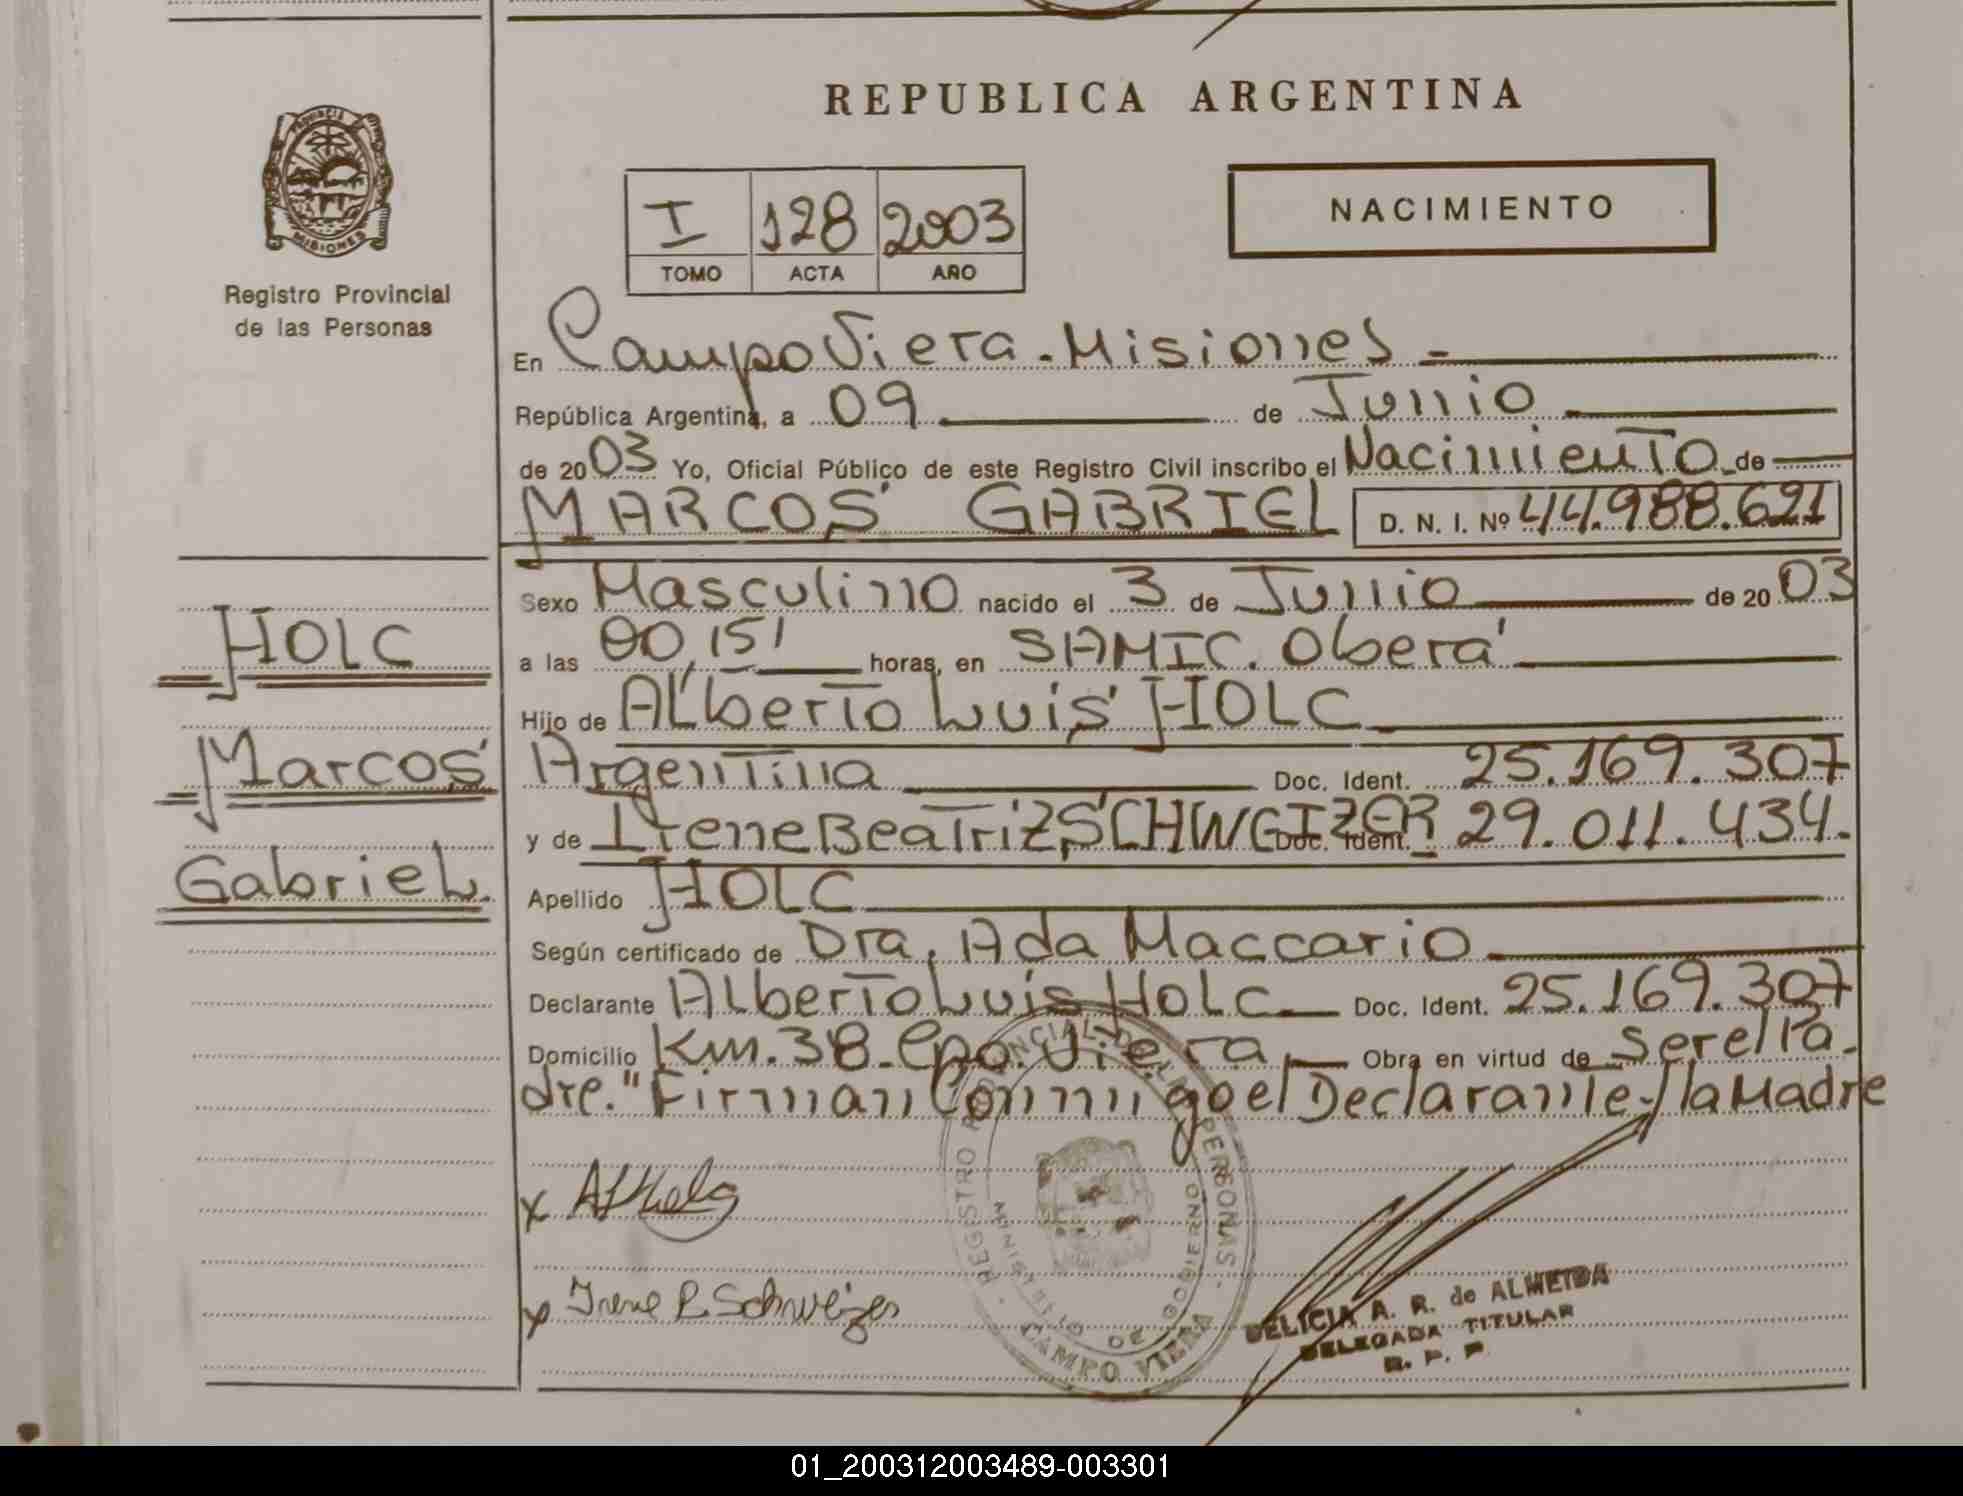 REPUBLICA ARGENTINA
PROVINCIA DE MISIONES
Registro Provincial
de las Personas
I 128 2003
TOMO ACTA AÑO
NACIMIENTO
En Campo Viera - Misiones -
República Argentina, a 09 de Junio
de 2003 Yo, Oficial Público de este Registro Civil inscribo el Nacimiento de
MARCOS GABRIEL D. N. I. Nº 44.988.621
Sexo Masculino nacido el 3 de Junio de 2003
a las 00,15' horas, en SAMIC. Oberá
Hijo de ALberto Luis HOLC
Argentina Doc. Ident. 25.169.307
y de Irene Beatriz SCHWEIZER Doc. Ident. 29.011.434.
Apellido HOLC
Según certificado de Dra. Ada Maccario
Declarante ALberto Luis HoLc Doc. Ident. 25.169.307
Domicilio Km. 38 - Cpo. Viera, Obra en virtud de ser el Pa-
dre." Firman Conmigo el Declarante y la Madre
HOLC
Marcos
GabrieL.
x
x Irene B Schweizer
REGISTRO PROVINCIAL DE LAS PERSONAS -
MINISTERIO DE GOBIERNO
CAMPO VIERA
DELICIA A. R. de ALMEIDA
DELEGADA TITULAR
R. P. P
01_200312003489-003301